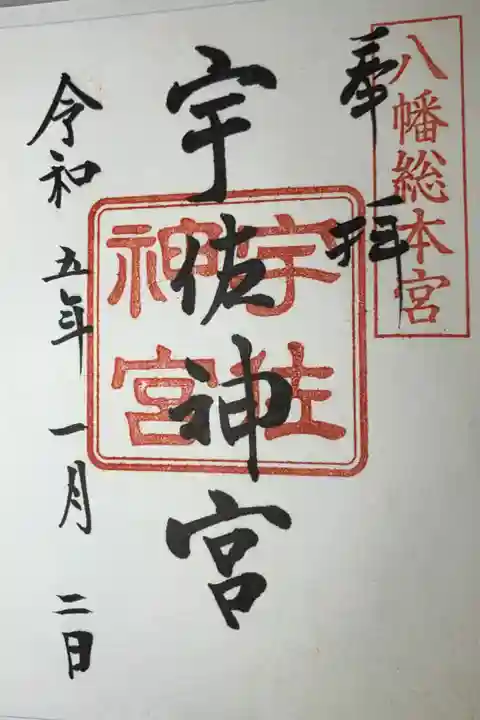 八幡総本宮
奉拝
宇佐神宮
宇佐
神宮
令和五年一月二日